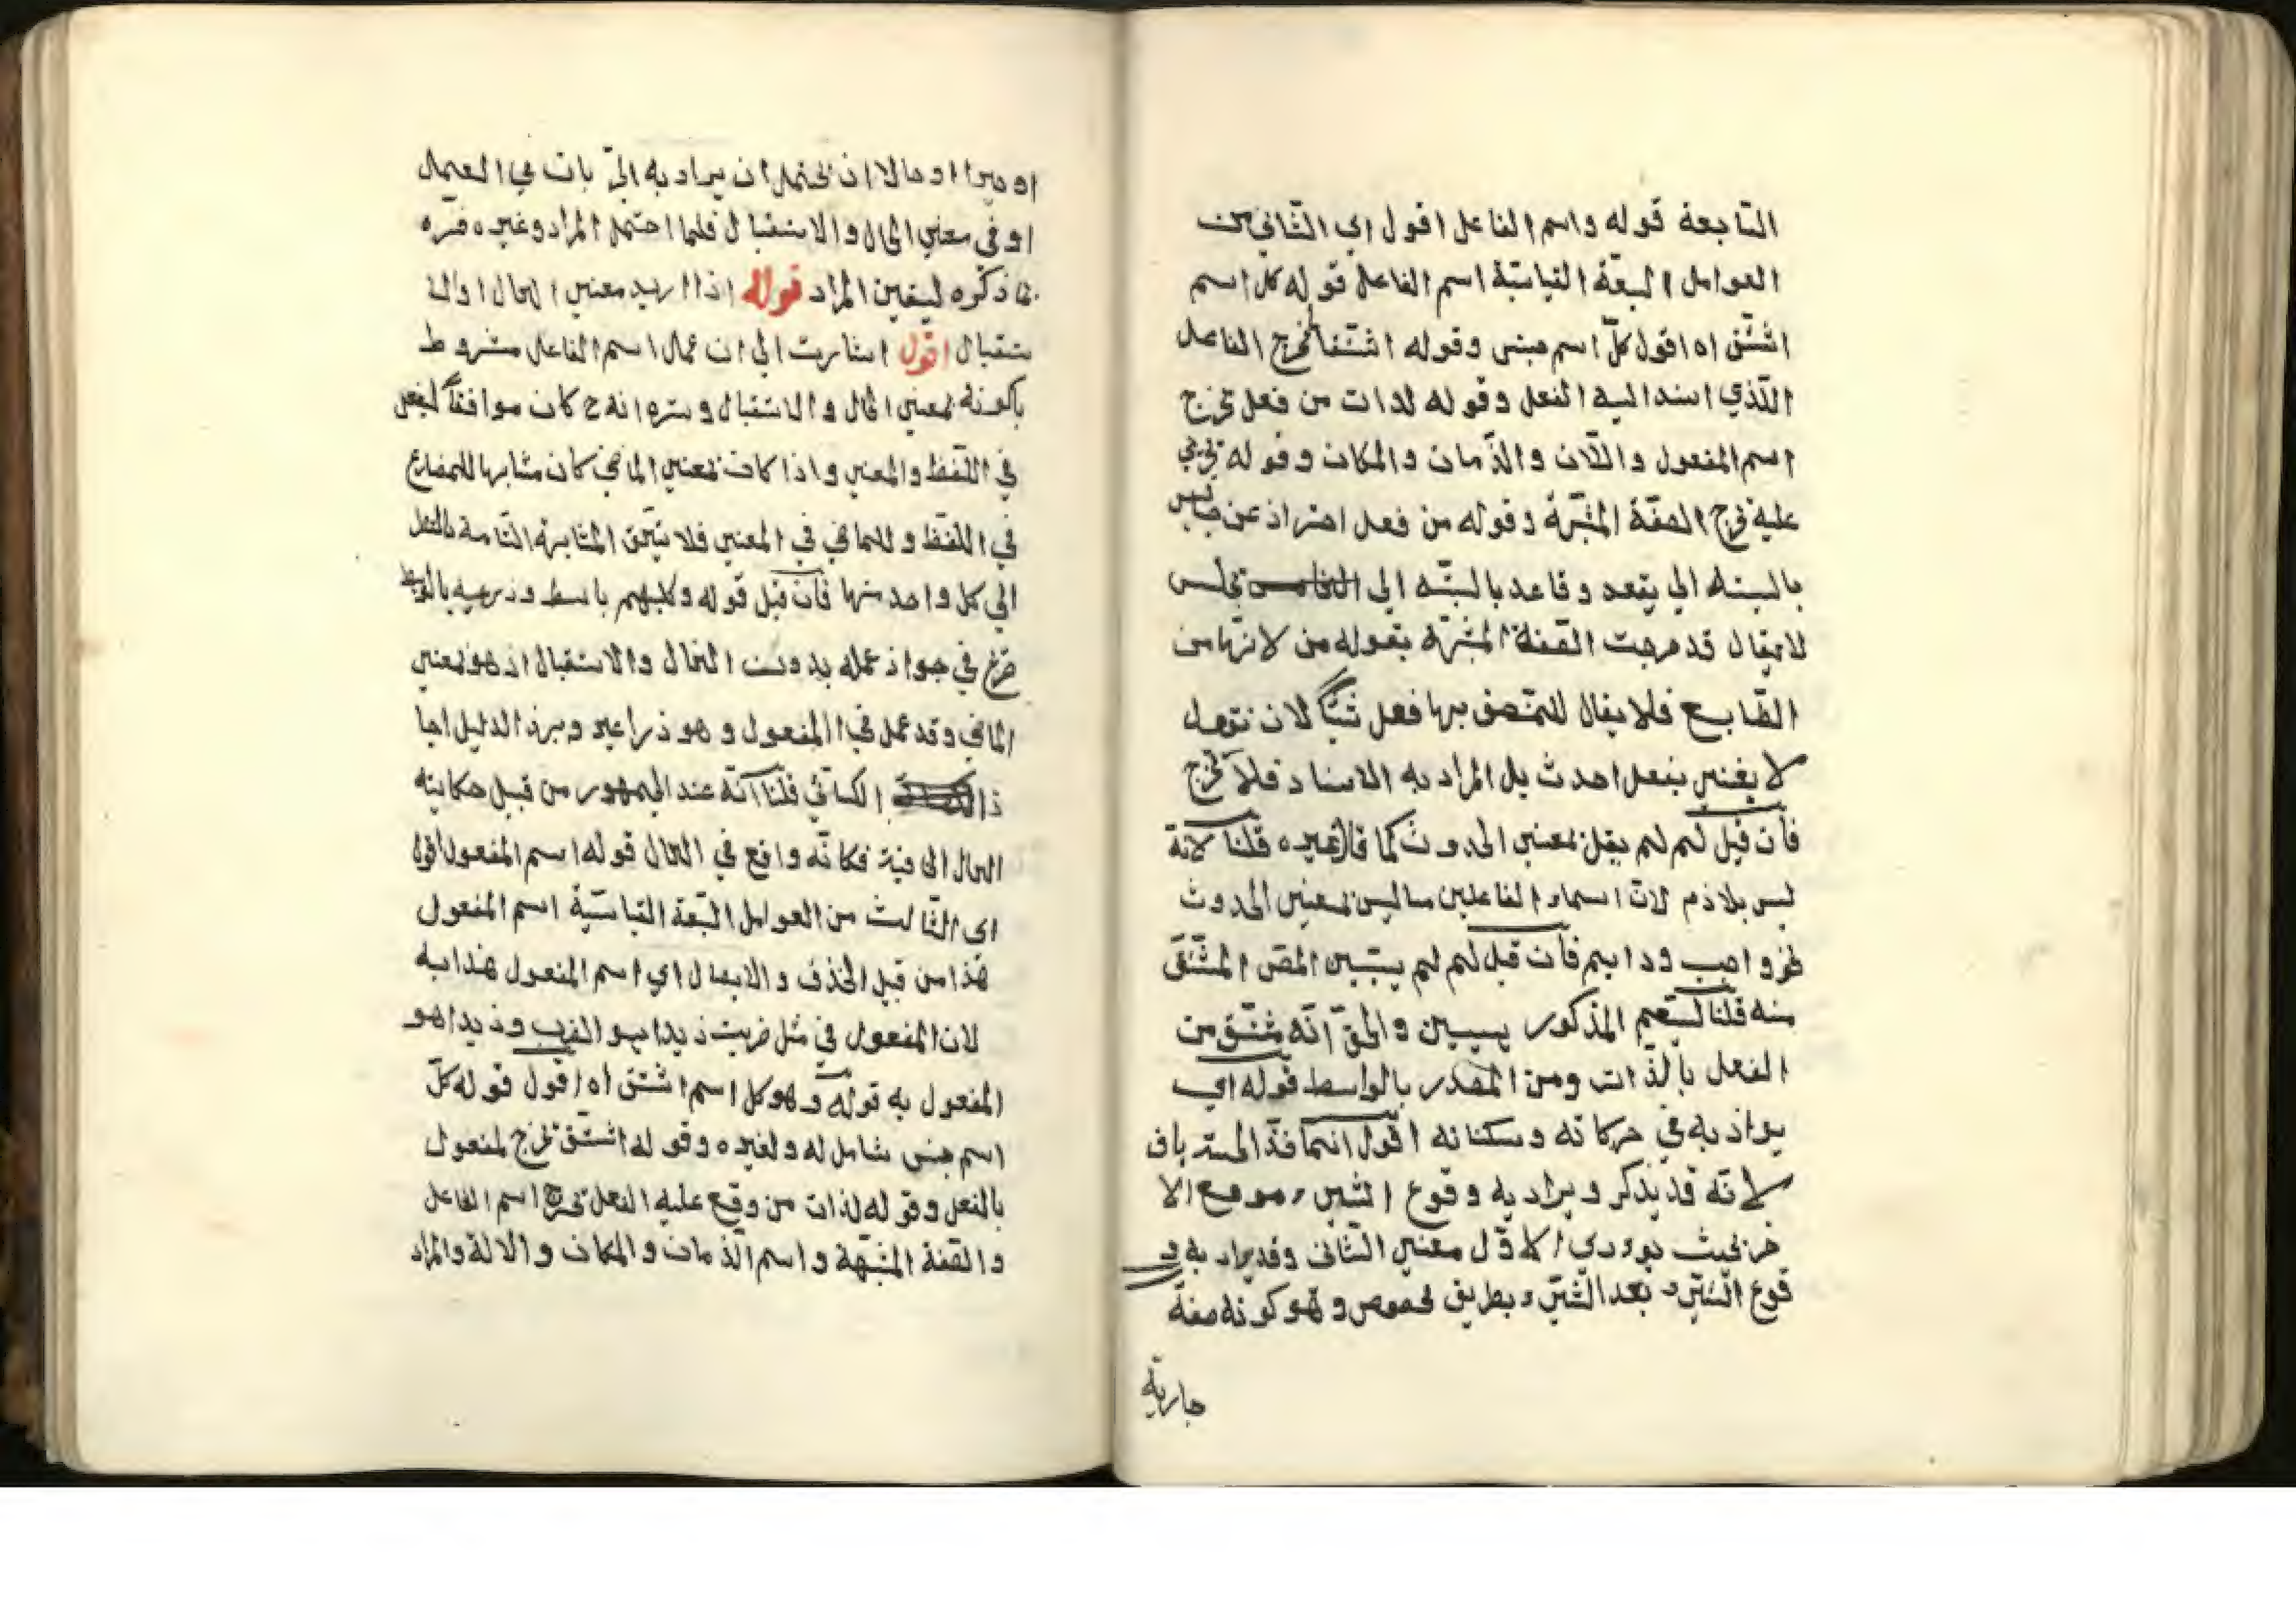 التابعة قوله واسم الفاعل اقول اي الثاني من
العوامل السبعة القياسية اسم الفاعل قوله كل اسم
اشتق اه اقول كل اسم جنس وقوله اشتق يخرج الفاعل
الذي اسند اليه الفعل وقوله لذات من فعل تخرج
اسم المفعول والالان والزمان والمكان وقوله
عليه تخرج الصفة المشبهة وقوله من فعل احتراز عن جالس
بالنسبة الي يقعد وقاعد بالنسبة الي يجلس
لا يقال قد خرجت الصفة المشبهة بقوله من لانها من
الطبايع فلا يقال للمتصف بها فعل شيئا لان نقول
لا يغني بفعل احدث بل المراد به الاسناد فلا تخرج
فان قيل لم لم يقل بمعني الحدوث كما قال غيره قلنا لانه
ليس بلازم لان اسماء الفاعلين ما ليس بمعني الحدوث
نحو واجب ودايم فان قيل لم لم يبين المص المشتق
منه قلنا المذكور والحق انه مشتق من
الفعل بالذات ومن المصدر بالواسط قوله اي
يوازيه في حركاته وسكناته اقول انما فسر
لانه قد يذكر ويراد به وقوع الشيء موقع الا
خر بحيث يودي الاول معني الثاني وقد يراد به و
قوع الشيء بعد الشيء بطريق مخصوص وهو كونه صفة
جارية
او خبرا او حالا ان يحتمل ان يراد به اي بات في العمل
او في معني الحال والاستقبال فلما احتمل المراد وغيره فسره
بما ذكره ليتعين المراد قوله اذا اريد معني الحال او الا
ستقبال اقول اشارت الي ان عمل اسم الفاعل مشروط
بكونه بمعني الحال والاستقبال وسره انه ح كان موافقا لفعل
في اللفظ والمعني واذا كان بمعني الماضي كان مشابها للمضارع
في اللفظ وللماضي في المعني فلا يتحقق المشابهة التامة بالفعل
الي كل واحد منها فان قيل قوله وكلبهم باسط ذرعيه بالوصيد
في جواز عمله بدون الحال والاستقبال اذ هو بمعني
الماضي وقد عمل في المفعول وهو ذراعيه وبهذا الدليل اجا
ز الكسائي قلنا انه عند الجمهور من قبيل حكاية
الحال الماضية فكانه واقع في الحال قوله اسم المفعول اقول
اي الثالث من العوامل السبعة القياسية اسم المفعول
هذا من قبيل الحذف والايصال اي اسم المفعول هذا به
لان المفعول في مثل ضربت زيدا هو الضرب وزيدا هو
المفعول به قوله وهو كل اسم اشتق اه اقول قوله كل
اسم جنس شامل له ولغيره وقوله اشتق تخرج لمفعول
بالفعل وقوله لذات من وقع عليه الفعل تخرج اسم الفاعل
والصفة المشبهة واسم الزمان والمكان والالة والمراد